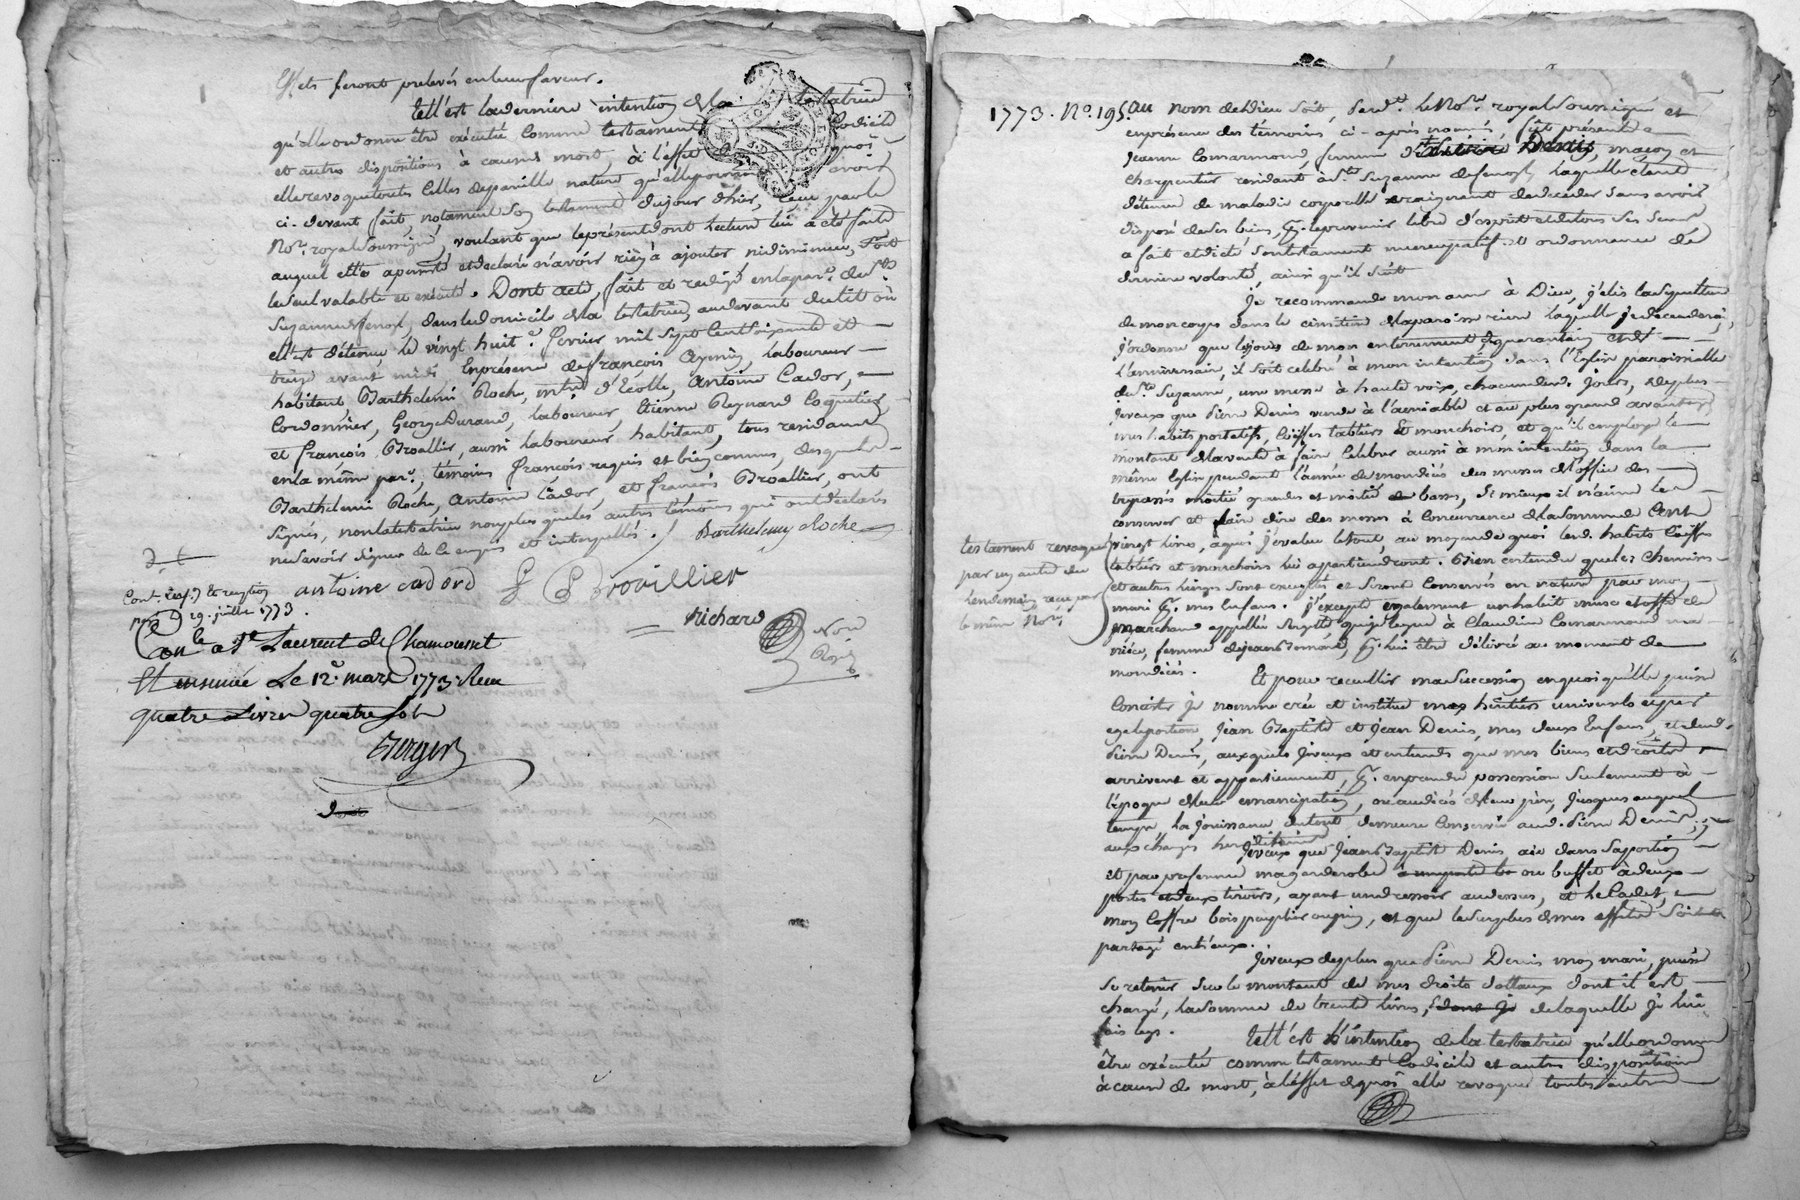 Effets seront prelevés en leur faveur.
Tell'est la derniere intention de la testatrice
qu'elle ordonne être exécuté comme testament codicile
et autres dispositions à cause de mort, à l'effet de quoi
elle revoque toutes celles de pareille nature qu'elle pourroit avoir
ci-devant fait, notament son testament du jour d'hier, reçu par le
No.re royal soussigné, voulant que le présent dont lecture lui a été faite
auquel elle a persisté et declaré n'avoir rien à ajouter ni diminuer, soit
le seul valable et exécuté. Dont acte, fait et redigé en la par.e de S.te
Suzanne dans le domicile de la testatrice au devant du lit où
ell'est détenue le vingt huit.e fevrier mil sept cent soixante et
treize avant midi En présence de françois laboureur
habitant Barthelemi Roche, mtre d'Ecolle, Antoine Cador,
Cordonnier, George Durand, laboureur, Etienne Reynard Coquetier
et françois Brollier, aussi laboureur habitant, tous residants
en la même par.e, témoins françois requis et bien connus, desquels
Barthelemi Roche, Antoine Cador, et françois Broallier, ont
signés, non la testatrice non plus que les autres témoins qui ont déclarés
ne savoir signer de ce enquis et interpellés. Barthelemy Roche
antoine cadord P Brovillier
Richard
Not.
Royal
19. juillet 1773.
Con.lé a St Laurent de Chamousset
Et insinué Le 12.e mars 1773. Reçu
quatre Livres quatre sols
Berger
1773. No. 195. Au nom de Dieu soit, pard.t le No.re royal soussigné et
en présence des témoins ci-après nommés fût présente
Jeanne Comarmond, femme Denis, maçon et
charpentier residant à S.te Suzanne laquelle étant
détenue de maladie corporelle craignant de deceder sans avoir
disposé de ses biens, libre d'esprit et de tous ses sens
a fait et dicté son testament nuncupatif et ordonnance de
derniere volonté, ainsi qu'il suit
Je recommande mon ame à Dieu, j'élis la sepulture
de mon corps dans le cimetiere de la paroisse riere laquelle je decederai,
j'ordonne que les jours de mon enterrement quarantain et de
l'anniversaire, il soit celebré à mon intention dans l'Eglise paroissielle
de S.te Suzanne, une messe à haute voix, chacun des jours, de plus
je veux que Pierre Denis vende à l'amiable et au plus grand avantage
mes habits portatifs, Coëffes tabliers Et mouchoirs, et qu'il employe le
montant de la vente à faire celebrer aussi à mon intention dans la
même Eglise pendant l'année de mon décès des messes de l'office des
trepassés moitié grandes et moitié de basses, si mieux il n'aime les
conserver et faire dire des messes à concurrence de la somme de Cent
vingt livres, à quoi j'evalue le tout, au moyen de quoi lesd. habits Coëffes
tabliers et mouchoirs lui apartiendront. Bien entendu que les chemises
et autres linges sont exceptés et seront conservés en nature pour mon
mari et mes Enfans. j'excepte egalement un habit etoffe de
marchand appellée sergette que je legue à Claudine Comarmond ma
niéce, femme de jean Bomond, pour lui être délivré au moment de
mon décès.
testament revoqué
par un autre du
lendemain reçu par
le même No.re
Et pour recueillir ma succession en quoi qu'elle puisse
Consister je nomme créé et institue mes héritiers universels et par
egale portion, Jean Baptiste et Jean Denis, mes deux Enfans, et dud.
Pierre Denis, auxquels je veux et entends que mes biens et droits
arrivent et appartiennent, pour en prendre possession seulement à
l'époque de leur emancipation, ou au décès de leur père, jusques auquel
temps la jouissance du tout demeure conservée aud. Pierre Denis,
aux charges hereditaires
je veux que Jean Baptiste Denis aie dans sa portion
et par preference ma garderobe ou buffet à deux
portes et deux tiroirs, ayant un dressoir au dessus, et le Cadet,
mon Coffre bois peuplier ou pin, et que le surplus de mes effets soit
partagé entr'eux.
je veux de plus que Pierre Denis mon mari, puisse
se retenir sur le montant de mes droits dottaux dont il est
chargé, la somme de trente livres, de laquelle je lui
fais legs.
Tell'est l'intention de la testatrice qu'elle ordonne
être exécutée comme testament Codicile et autres dispositions
à cause de mort, à l'éffet de quoi elle revoque toutes autres